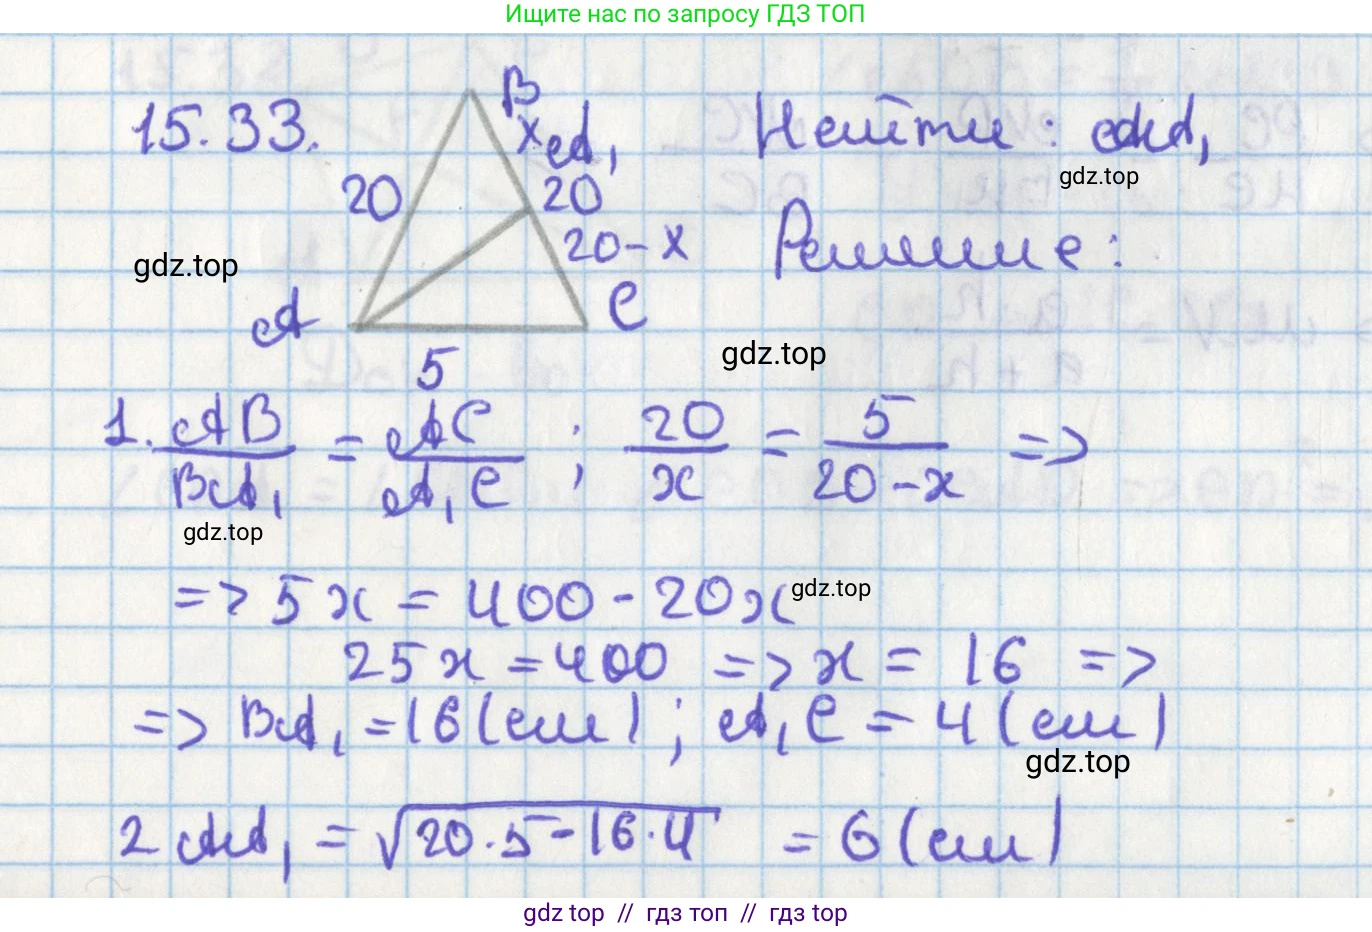 Ищите нас по запросу ГДЗ ТОП
15.33.
B
x A₁
20
20
20-x
A
C
5
Найти: AA₁
gdz.top
gdz.top
Решение:
gdz.top
1. AB/BA₁ = AC/A₁C ; 20/x = 5/(20-x) =>
gdz.top
=> 5x = 400 - 20x
gdz.top
25x = 400 => x = 16 =>
=> BA₁ = 16 (см) ; A₁C = 4 (см)
gdz.top
2 AA₁ = √(20·5-16·4) = 6 (см)
gdz top // гдз топ // гдз top